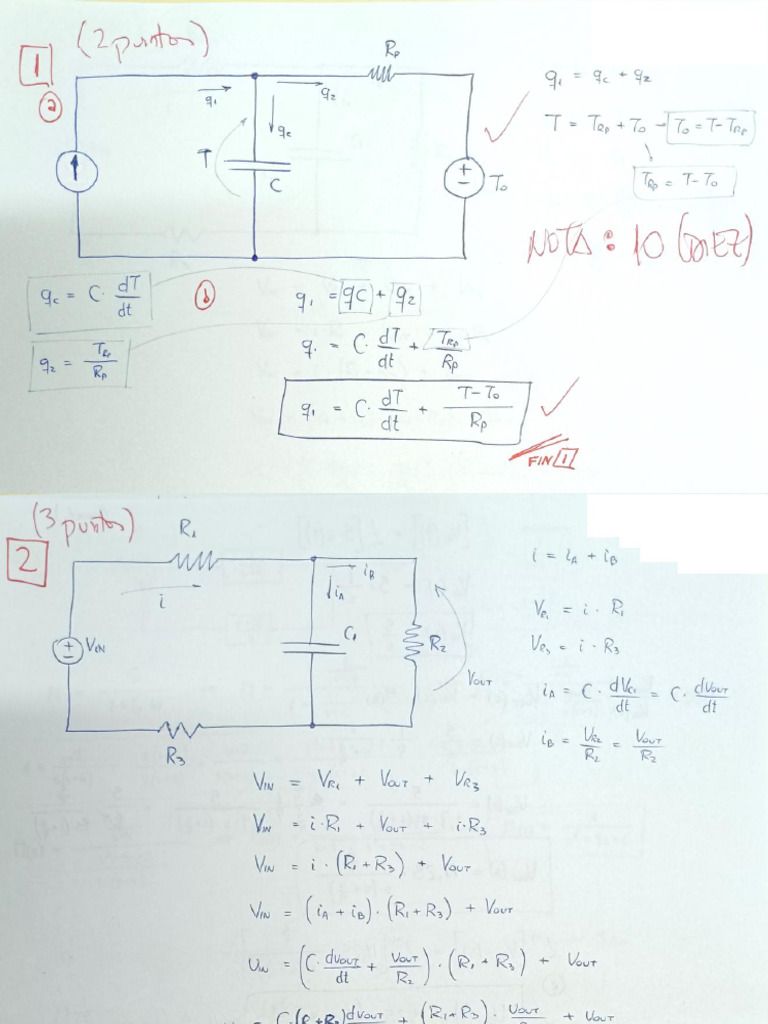 (2 puntos)
1
a
Rp
q1
q2
qc
T
C
To
q1 = qc + q2
T = TRp + To → To = T - TRp
TRp = T - To
NOTA: 10 (DIEZ)
qc = C · dT/dt
b
q1 = qc + q2
q2 = TRp/Rp
q1 = C · dT/dt + TRp/Rp
q1 = C · dT/dt + T-To/Rp
FIN 1
(3 puntos)
2
R1
i
iA
iB
VIN
C1
R2
VOUT
R3
i = iA + iB
VR1 = i · R1
VR3 = i · R3
iA = C · dVC1/dt = C · dVOUT/dt
iB = VR2/R2 = VOUT/R2
VIN = VR1 + VOUT + VR3
VIN = i·R1 + VOUT + i·R3
VIN = i · (R1 + R3) + VOUT
VIN = (iA + iB) · (R1 + R3) + VOUT
VIN = (C · dVOUT/dt + VOUT/R2) · (R1 + R3) + VOUT